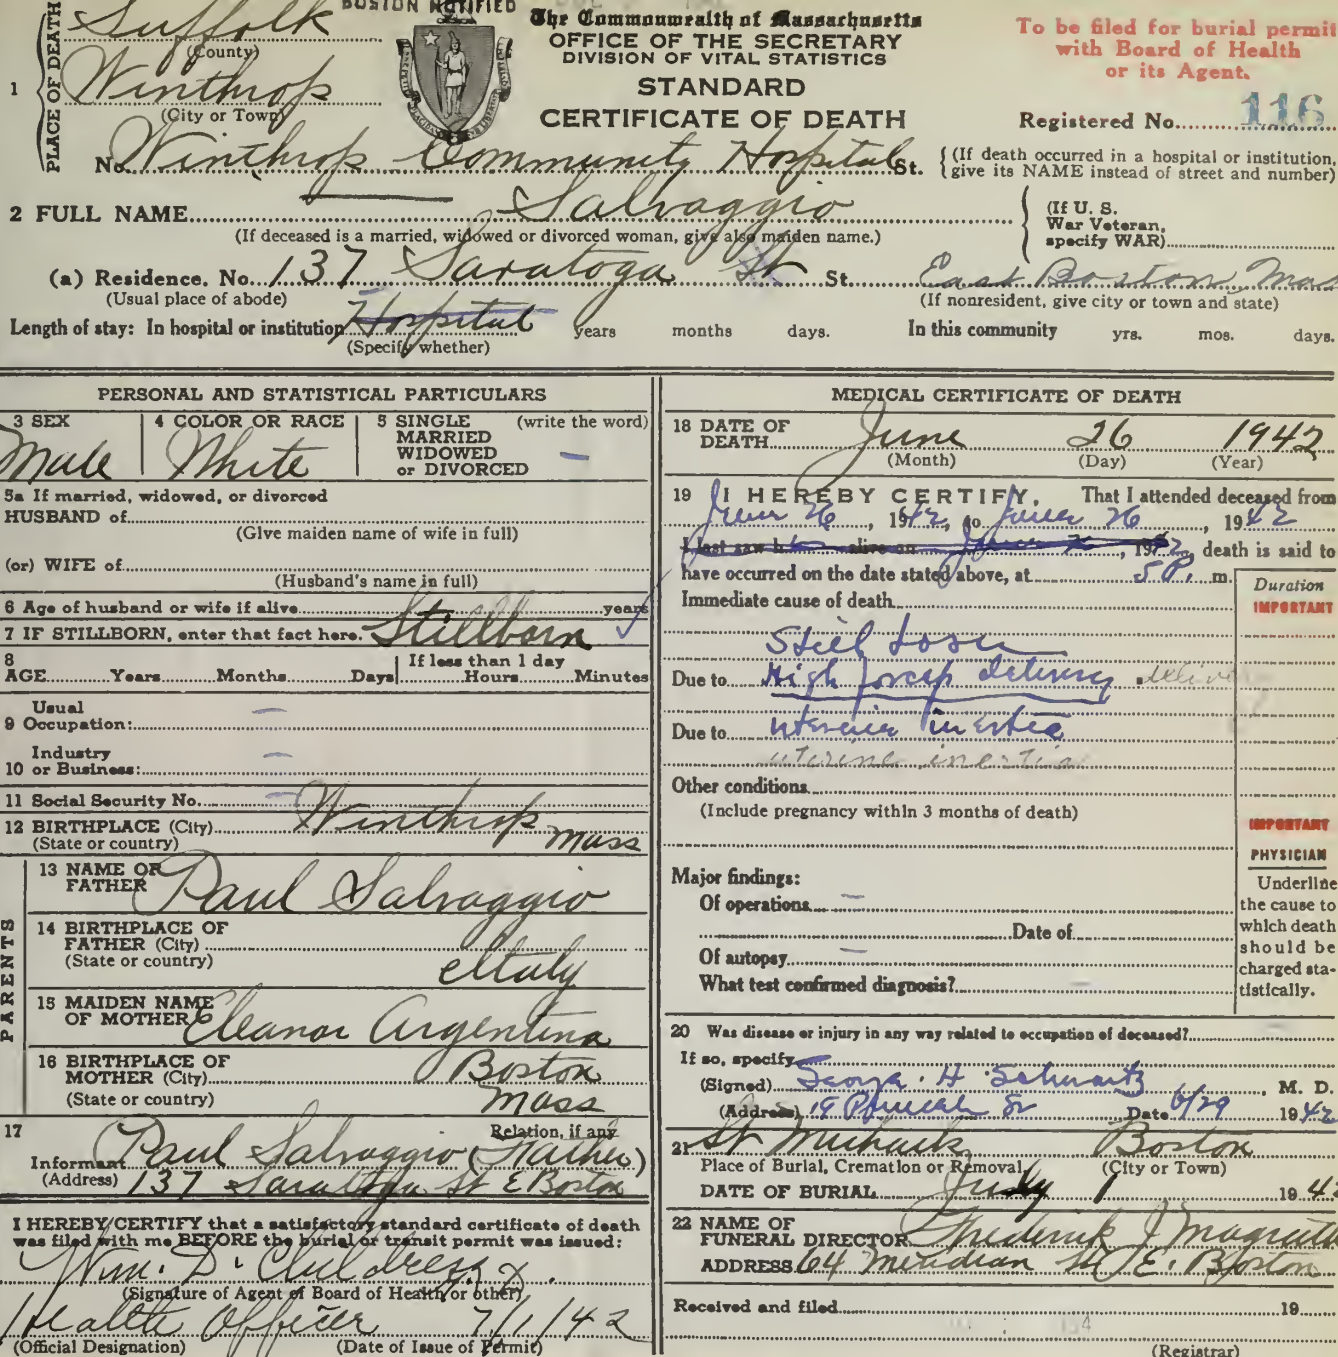 BOSTON NOTIFIED
The Commonwealth of Massachusetts
OFFICE OF THE SECRETARY
DIVISION OF VITAL STATISTICS
STANDARD
CERTIFICATE OF DEATH
To be filed for burial permit
with Board of Health
or its Agent.
Registered No. 116
1 PLACE OF DEATH
Suffolk
(County)
Winthrop
(City or Town)
No. Winthrop Community Hospital St.
(If death occurred in a hospital or institution,
give its NAME instead of street and number)
2 FULL NAME — Salvaggio
(If deceased is a married, widowed or divorced woman, give also maiden name.)
(If U. S.
War Veteran,
specify WAR)
(a) Residence. No. 137 Saratoga St St. East Boston Mass
(Usual place of abode)
(If nonresident, give city or town and state)
Length of stay: In hospital or institution Hospital years months days. In this community yrs. mos. days.
(Specify whether)
PERSONAL AND STATISTICAL PARTICULARS
3 SEX
Male
4 COLOR OR RACE
White
5 SINGLE (write the word)
MARRIED
WIDOWED
or DIVORCED —
5a If married, widowed, or divorced
HUSBAND of
(Give maiden name of wife in full)
(or) WIFE of
(Husband's name in full)
6 Age of husband or wife if alive years
7 IF STILLBORN, enter that fact here. Stillborn ✓
8
AGE Years Months Days If less than 1 day Hours Minutes
Usual
9 Occupation: —
Industry
10 or Business: —
11 Social Security No. —
12 BIRTHPLACE (City) Winthrop
(State or country) Mass
PARENTS
13 NAME OF
FATHER Paul Salvaggio
14 BIRTHPLACE OF
FATHER (City)
(State or country) Italy
15 MAIDEN NAME
OF MOTHER Eleanor Argentina
16 BIRTHPLACE OF
MOTHER (City) Boston
(State or country) Mass
17 Relation, if any
Informant Paul Salvaggio (Father)
(Address) 137 Saratoga St E Boston
I HEREBY CERTIFY that a satisfactory standard certificate of death
was filed with me BEFORE the burial or transit permit was issued:
Wm. D. Childress
(Signature of Agent of Board of Health or other)
Health Officer 7/1/42
(Official Designation) (Date of Issue of Permit)
MEDICAL CERTIFICATE OF DEATH
18 DATE OF
DEATH June 26 1942
(Month) (Day) (Year)
19 I HEREBY CERTIFY, That I attended deceased from
June 26, 1942, to June 26, 1942
I last saw h alive on June 26, 1942, death is said to
have occurred on the date stated above, at 5 P. m.
Duration
IMPORTANT
Immediate cause of death
Still born
Due to High forcep delivery
Due to uterine inertia
uterine inertia
Other conditions
(Include pregnancy within 3 months of death)
IMPORTANT
PHYSICIAN
Underline
the cause to
which death
should be
charged sta-
tistically.
Major findings:
Of operations —
Date of
Of autopsy —
What test confirmed diagnosis? —
20 Was disease or injury in any way related to occupation of deceased?
If so, specify
(Signed) George H Schwartz, M. D.
(Address) 19 Date 6/29 1942
21 St Michaels Boston
Place of Burial, Cremation or Removal. (City or Town)
DATE OF BURIAL July 1 1942
22 NAME OF
FUNERAL DIRECTOR Frederick J Magrath
ADDRESS 64 Meridian St E. Boston
Received and filed 19
(Registrar)